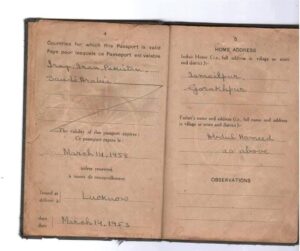 4
Countries for which this Passport is valid
Pays pour lesquels ce Passeport est valable
Iraq, Iran, Pakistan,
Saudi Arabia
The validity of this passport expires:
Ce passeport expire le:
March 14, 1958
unless renewed
à moins de renouvellement
Issued at
délivré à
Lucknow
date
date
March 14, 1953
5
HOME ADDRESS
Indian Home (i.e., full address in village or town
and district):-
Ismailpur
Gorakhpur
Father's name and address (i.e., full name and address
in village or town and district):-
Abdul Hameed
as above
OBSERVATIONS